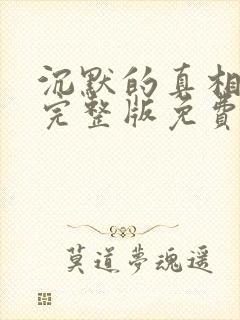 沉默的真相
完整版免費
莫道夢魂遥